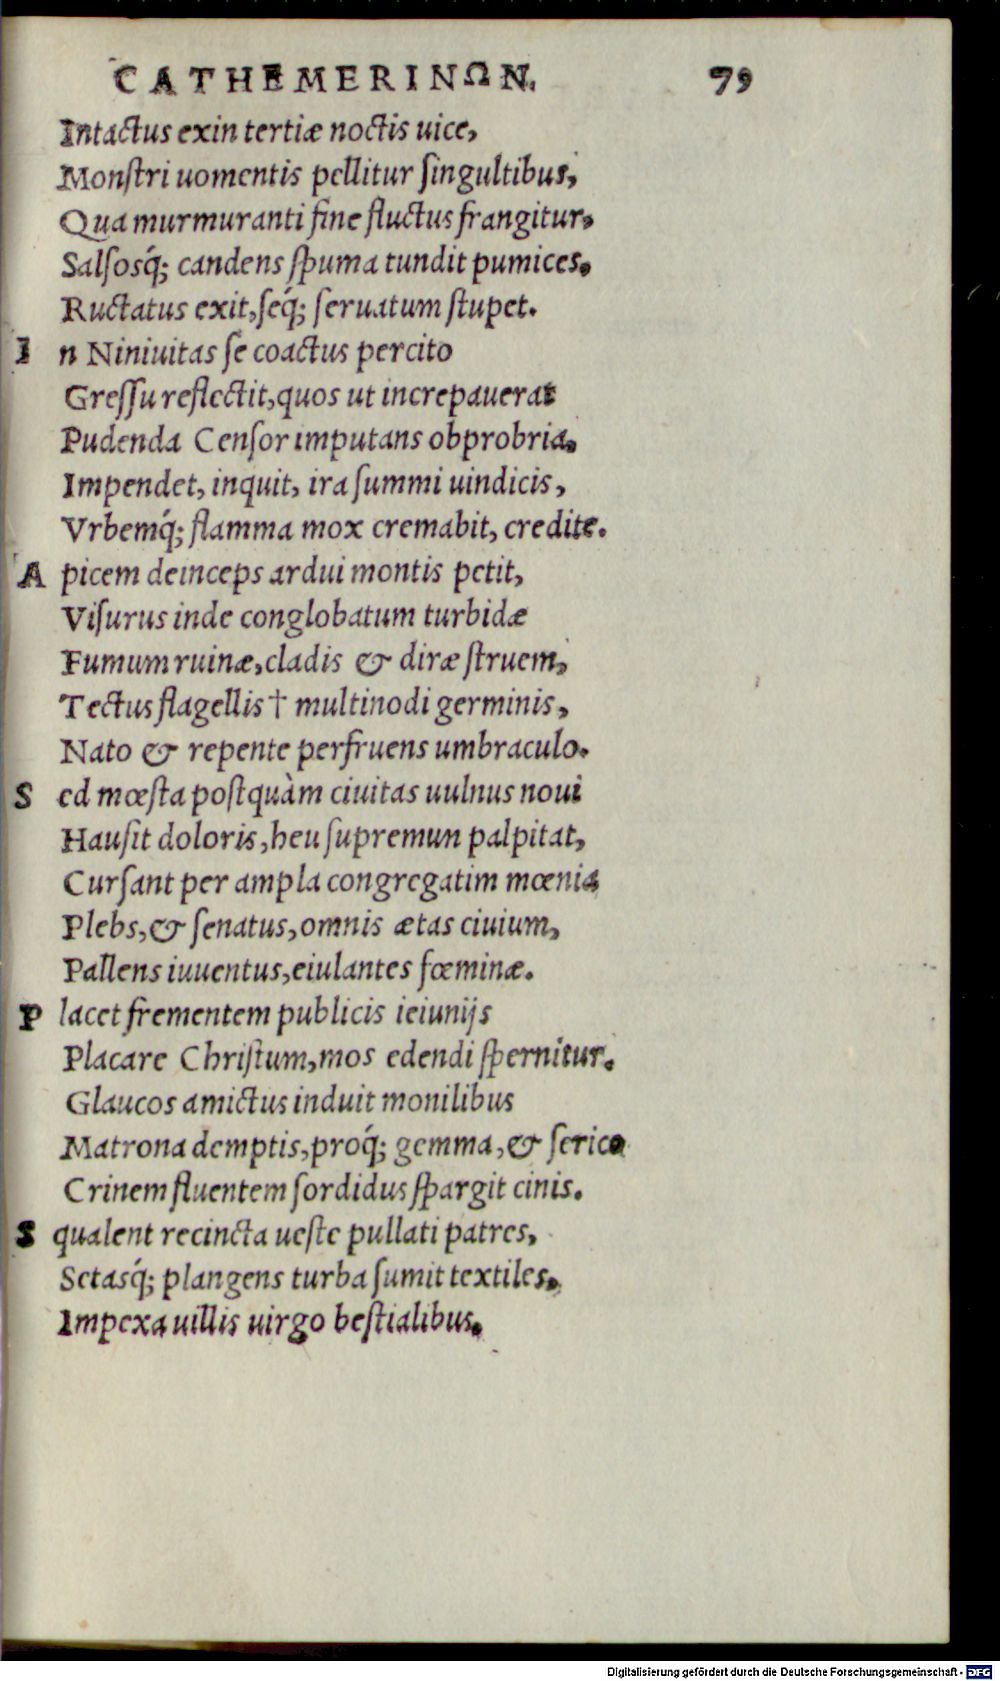 CATHEMERINΩN. 79
Intactus exin tertiæ noctis uice,
Monſtri uomentis pellitur ſingultibus,
Qua murmuranti fine fluctus frangitur,
Salſosq́; candens ſpuma tundit pumices,
Ructatus exit, ſeq́; ſeruatum ſtupet.
I n Niniuitas ſe coactus percito
Greſſu reflectit, quos ut increpauerat
Pudenda Cenſor imputans obprobria,
Impendet, inquit, ira ſummi uindicis,
Vrbemq́; flamma mox cremabit, credite.
A picem deinceps ardui montis petit,
Viſurus inde conglobatum turbidæ
Fumum ruinæ, cladis & diræ ſtruem,
Tectus flagellis † multinodi germinis,
Nato & repente perfruens umbraculo.
S ed mœſta poſtquàm ciuitas uulnus noui
Hauſit doloris, heu ſupremun palpitat,
Curſant per ampla congregatim mœnia
Plebs, & ſenatus, omnis ætas ciuium,
Pallens iuuentus, eiulantes fœminæ.
P lacet frementem publicis ieiunijs
Placare Chriſtum, mos edendi ſpernitur.
Glaucos amictus induit monilibus
Matrona demptis, proq́; gemma, & ſerico
Crinem fluentem ſordidus ſpargit cinis.
S qualent recincta ueſte pullati patres,
Setasq́; plangens turba ſumit textiles,
Impexa uillis uirgo beſtialibus,
Digitalisierung gefördert durch die Deutsche Forschungsgemeinschaft - DFG